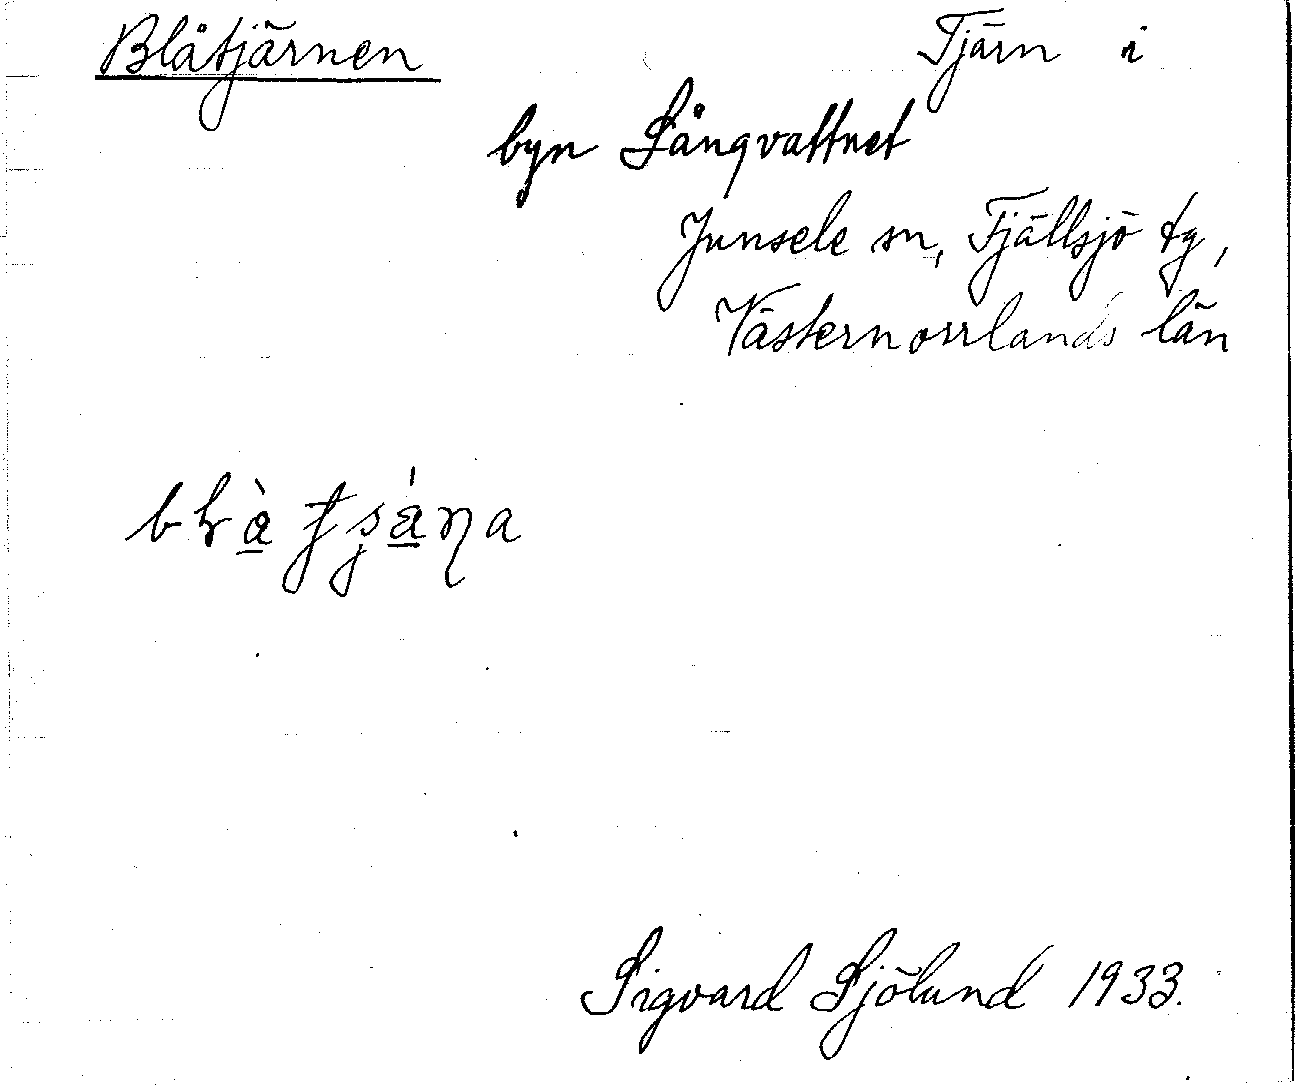 Blåtjärnen Tjärn i
byn Långvattnet
Junsele sn, Fjällsjö tg,
Västernorrlands län
bɽɑ̱̀ ʈʂá̱ɳa
Sigvard Sjölund 1933.